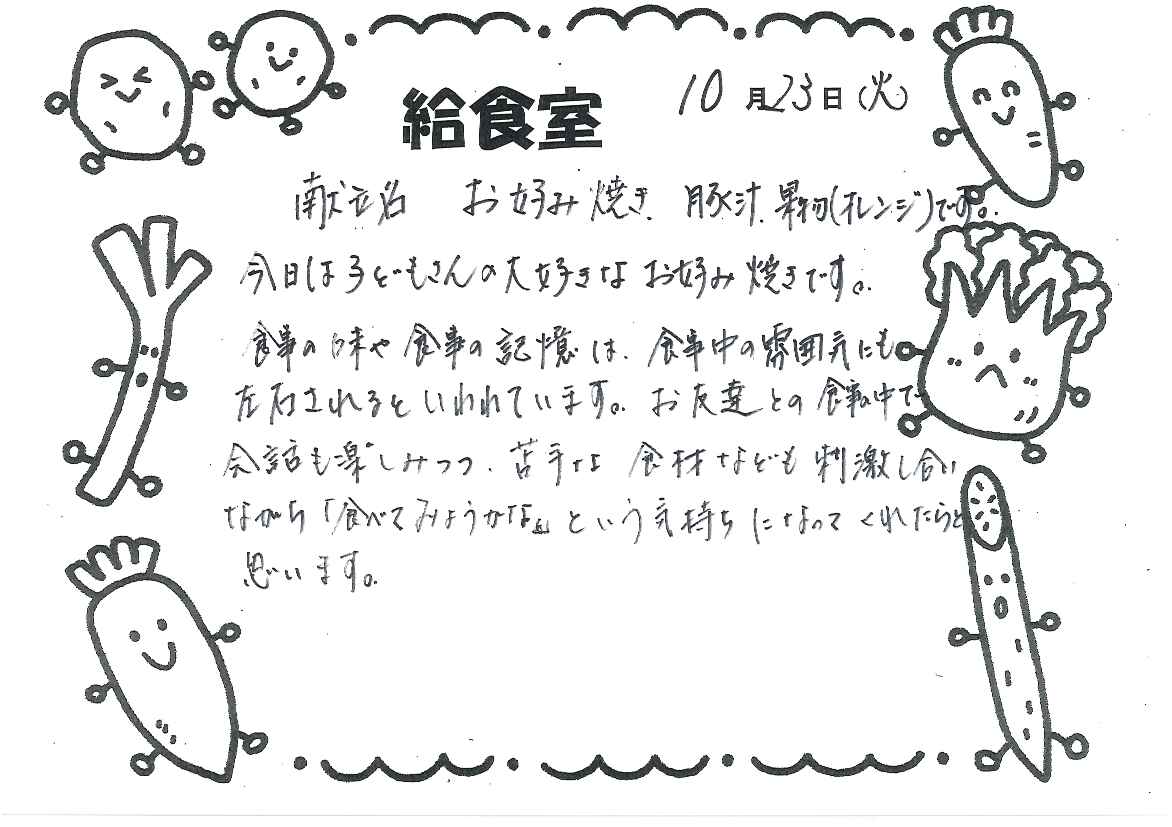 給食室 10月23日(火)
献立名 お好み焼き、豚汁、果物(オレンジ)です。
今日は子どもさんの大好きなお好み焼きです。
食事の味や食事の記憶は、食事中の雰囲気にも
左右されるといわれています。お友達との食事の中で
会話も楽しみつつ、苦手な食材なども刺激し合い
ながら「食べてみようかな」という気持ちになってくれたらと
思います。